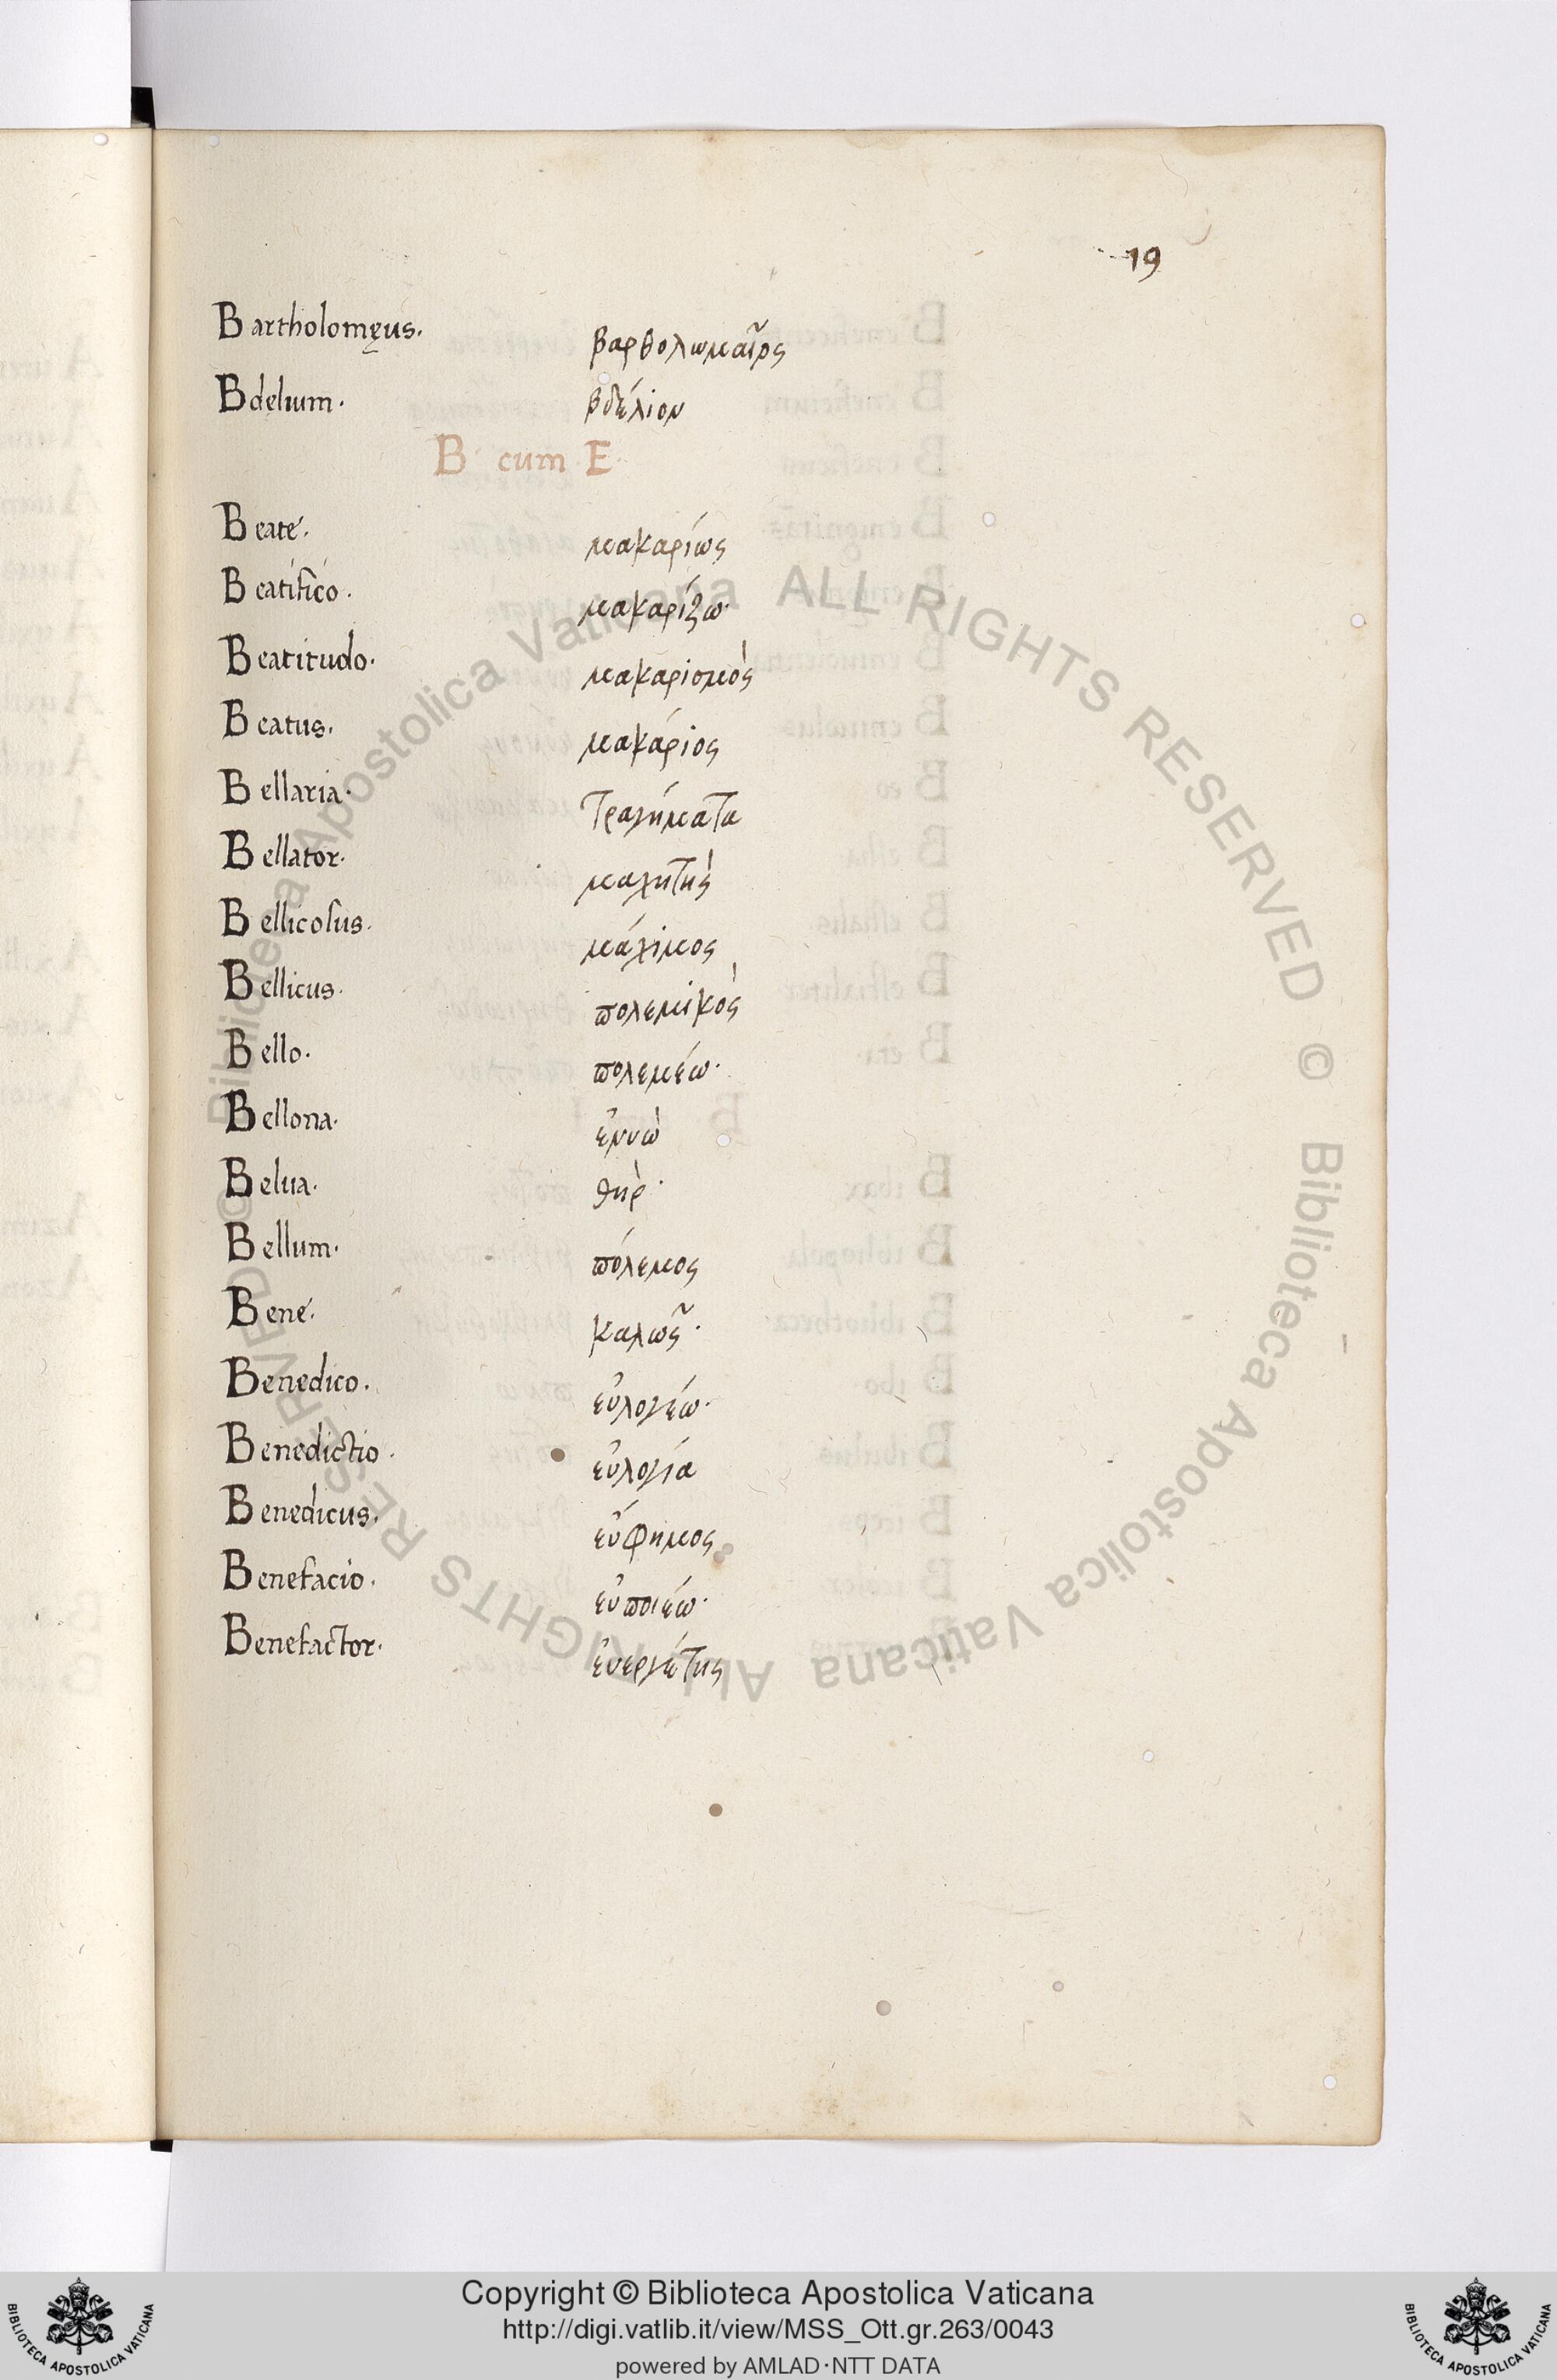 19
Bartholomęus. βαρθολωμαῖος
Bdelium. βδέλιον
B cum E.
Beaté. μακαρίως
Beatifico. μακαρίζω·
Beatitudo. μακαρισμὸς
Beatus. μακάριος
Bellaria. τραγήματα
Bellator. μαχητὴς
Bellicosus. μάχιμος
Bellicus. πολεμικὸς
Bello. πολεμέω·
Bellona. ἐνυὼ
Belua. θὴρ·
Bellum. πόλεμος
Bené. καλῶς·
Benedico. εὐλογέω·
Benedictio. εὐλογία
Benedicus. εὔφημος
Benefacio. εὐποιέω·
Benefactor. ἐυεργέτης
© Biblioteca Apostolica Vaticana ALL RIGHTS RESERVED © Biblioteca Apostolica Vaticana ALL RIGHTS RESERVED
Copyright © Biblioteca Apostolica Vaticana
http://digi.vatlib.it/view/MSS_Ott.gr.263/0043
powered by AMLAD·NTT DATA
BIBLIOTECA APOSTOLICA VATICANA
BIBLIOTECA APOSTOLICA VATICANA